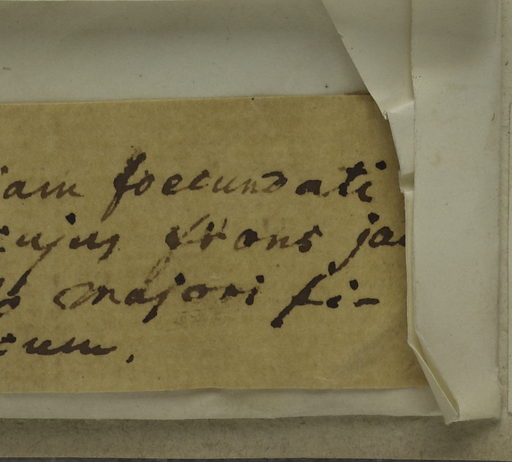 iam foecundati
cujus frons jac
majori fi-
tum.